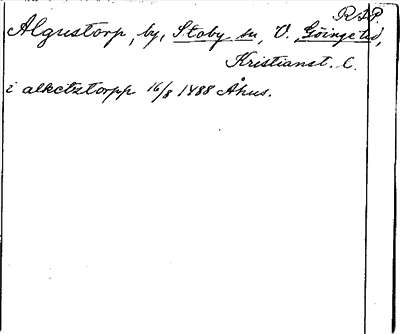 R.A.P.
Algustorp, by, Stoby sn, V. Göinge hd,
Kristianst. l.
i alketztorpp 16/8 1488 Åhus.